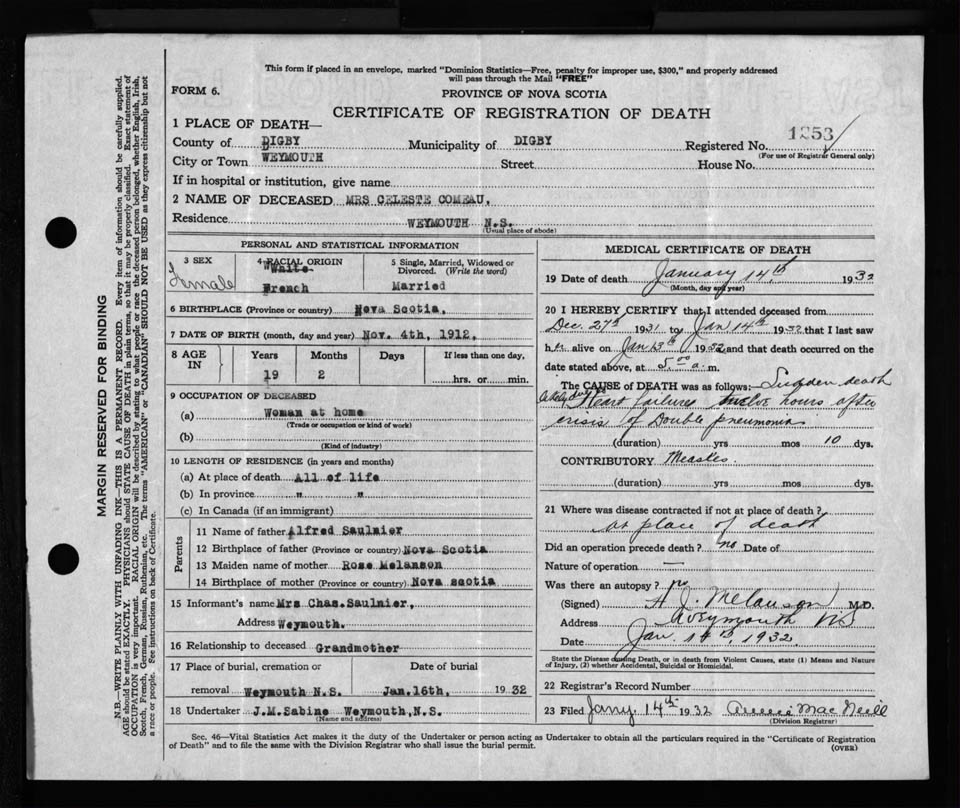 This form if placed in an envelope, marked "Dominion Statistics—Free, penalty for improper use, $300," and properly addressed
will pass through the Mail "FREE"
FORM 6.
PROVINCE OF NOVA SCOTIA
CERTIFICATE OF REGISTRATION OF DEATH
1 PLACE OF DEATH—
County of DIGBY Municipality of DIGBY Registered No. 1253
(For use of Registrar General only)
City or Town WEYMOUTH Street House No.
If in hospital or institution, give name
2 NAME OF DECEASED MRS CELESTE COMEAU,
Residence WEYMOUTH N.S.
(Usual place of abode)
PERSONAL AND STATISTICAL INFORMATION
3 SEX 4 RACIAL ORIGIN 5 Single, Married, Widowed or
Divorced. (Write the word)
Female White French Married
6 BIRTHPLACE (Province or country) Nova Scotia.
7 DATE OF BIRTH (month, day and year) Nov. 4th, 1912.
8 AGE IN Years Months Days If less than one day,
19 2 hrs. or min.
9 OCCUPATION OF DECEASED
(a) Woman at home
(Trade or occupation or kind of work)
(b)
(Kind of industry)
10 LENGTH OF RESIDENCE (in years and months)
(a) At place of death All of life
(b) In province " "
(c) In Canada (if an immigrant)
Parents
11 Name of father Alfred Saulnier
12 Birthplace of father (Province or country) Nova Scotia
13 Maiden name of mother Rose Melanson
14 Birthplace of mother (Province or country) Nova scotia
15 Informant's name Mrs Chas. Saulnier,
Address Weymouth.
16 Relationship to deceased Grandmother
17 Place of burial, cremation or Date of burial
removal Weymouth N.S. Jan. 16th, 1932
18 Undertaker J.M. Sabine Weymouth, N.S.
(Name and address)
MEDICAL CERTIFICATE OF DEATH
19 Date of death January 14th, 1932
(Month, day and year)
20 I HEREBY CERTIFY that I attended deceased from
Dec. 27th 1931 to Jan 14th 1932 that I last saw
her alive on Jan 13th 1932 and that death occurred on the
date stated above, at 5.00 a.m.
The CAUSE of DEATH was as follows: Sudden death
Heart failure twelve hours after
crisis of Double pneumonia
(duration) yrs mos 10 dys.
CONTRIBUTORY Measles.
(duration) yrs mos dys.
21 Where was disease contracted if not at place of death?
At place of death
Did an operation precede death? no Date of
Nature of operation —
Was there an autopsy? no
(Signed) H J. Melanson M.D.
Address Weymouth NS
Date Jan. 14th, 1932
State the Disease causing Death, or in death from Violent Causes, state (1) Means and Nature
of Injury, (2) whether Accidental, Suicidal or Homicidal.
22 Registrar's Record Number
23 Filed Jany 14th 1932 Annie MacNeill
(Division Registrar)
Sec. 46—Vital Statistics Act makes it the duty of the Undertaker or person acting as Undertaker to obtain all the particulars required in the "Certificate of Registration
of Death" and to file the same with the Division Registrar who shall issue the burial permit.
(OVER)
MARGIN RESERVED FOR BINDING
N.B.—WRITE PLAINLY WITH UNFADING INK—THIS IS A PERMANENT RECORD. Every item of information should be carefully supplied.
AGE should be stated EXACTLY. PHYSICIANS should STATE CAUSE OF DEATH in plain terms, so that it may be properly classified. Exact statement of
OCCUPATION is very important. RACIAL ORIGIN will be described by stating to what people or race the deceased person belonged, whether English, Irish,
Scotch, French, German, Russian, Ruthenian, etc. The terms "AMERICAN" or "CANADIAN" SHOULD NOT BE USED as they express citizenship but not
a race or people. See instructions on back of Certificate.